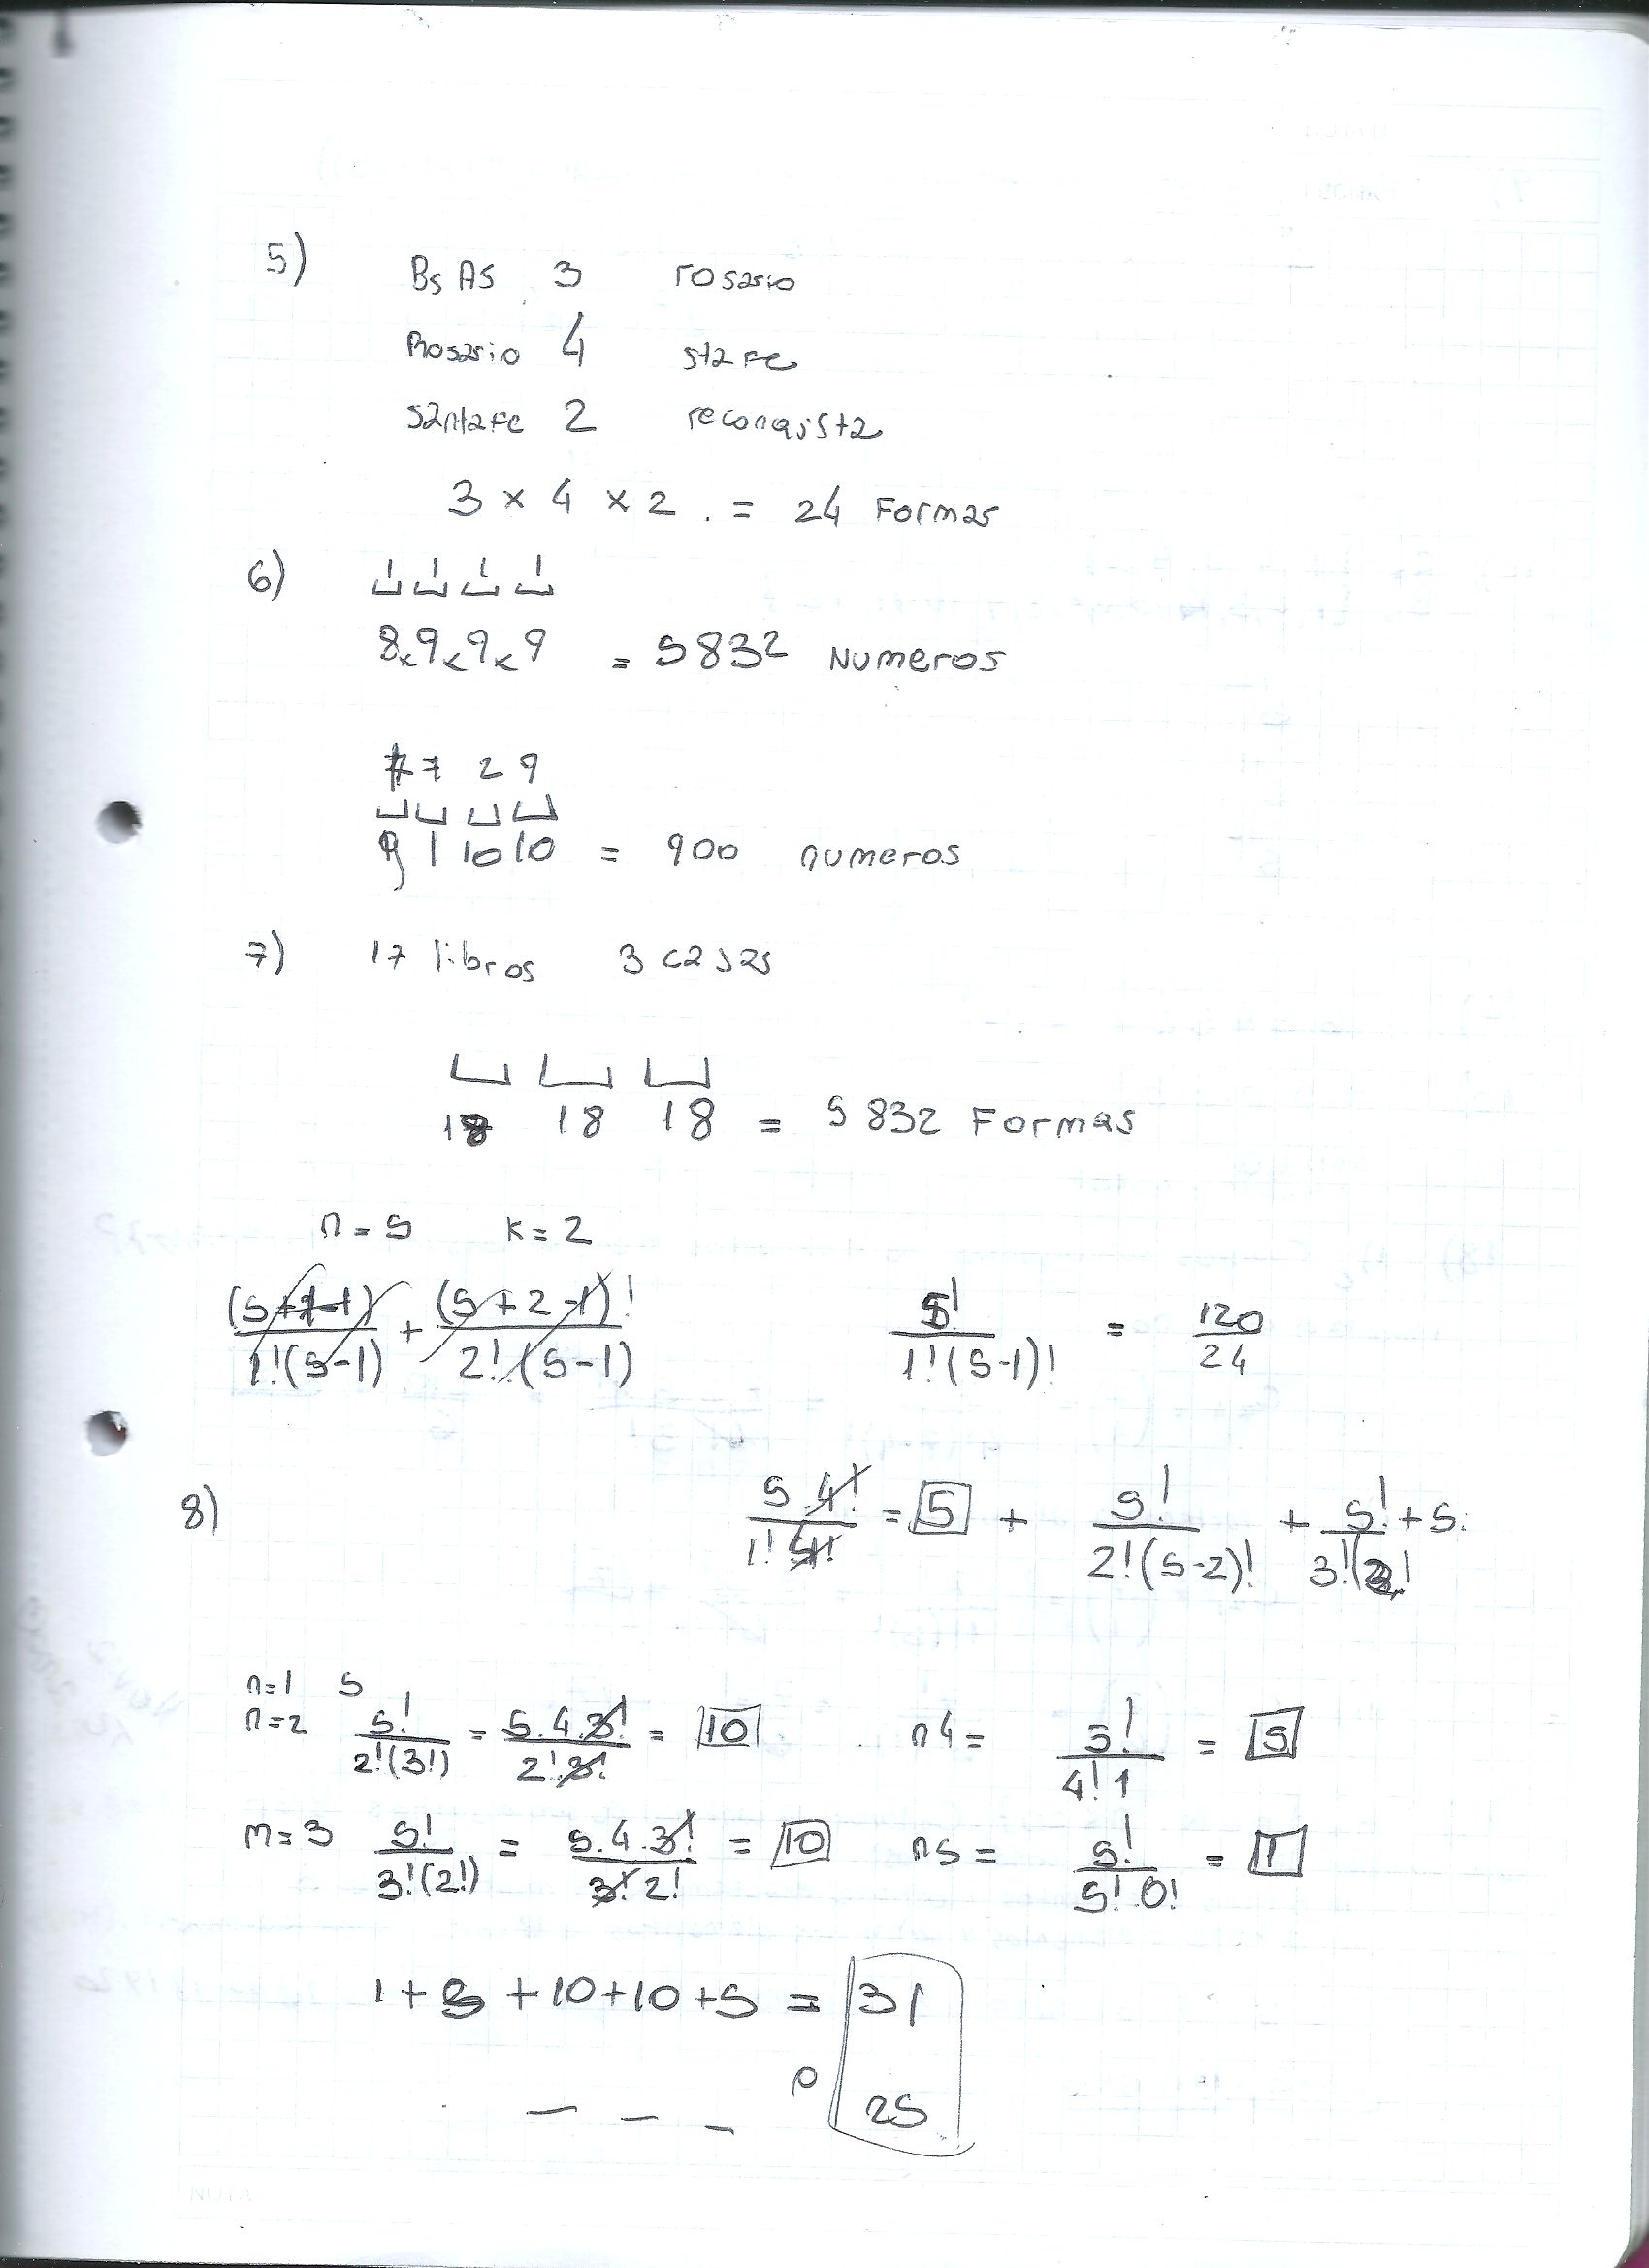 5)
BsAS 3 rosario
Rosario 4 sta Fe
santa Fe 2 reconqista
3 x 4 x 2 . = 24 Formas
6) 1 1 1 1
8x9x9x9 = 5832 NUMEROS
7 2 9
9 1 10 10 = 900 numeros
7) 17 libros 3 casas
18 18 18 = 5832 Formas
n = 5 k = 2
(5+1-1) / 1!(5-1) + (5+2-1)! / 2!(5-1) 5! / 1!(5-1)! = 120 / 24
8) 5.4! / 1!4! = 5 + 5! / 2!(5-2)! + 5! / 3!(2! + 5
n=1 5
n=2 5! / 2!(3!) = 5.4.3! / 2!.3! = 10 n4 = 5! / 4!1 = 5
n=3 5! / 3!(2!) = 5.4.3! / 3!2! = 10 n5 = 5! / 5!0! = 1
1+5+10+10+5 = 31
o
25
NOTA